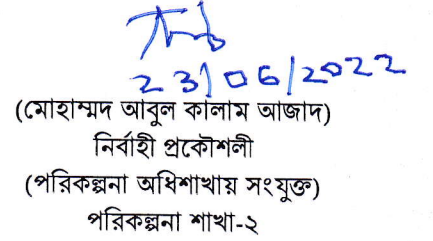 23/06/2022
(মোহাম্মদ আবুল কালাম আজাদ)
নির্বাহী প্রকৌশলী
(পরিকল্পনা অধিশাখায় সংযুক্ত)
পরিকল্পনা শাখা-২